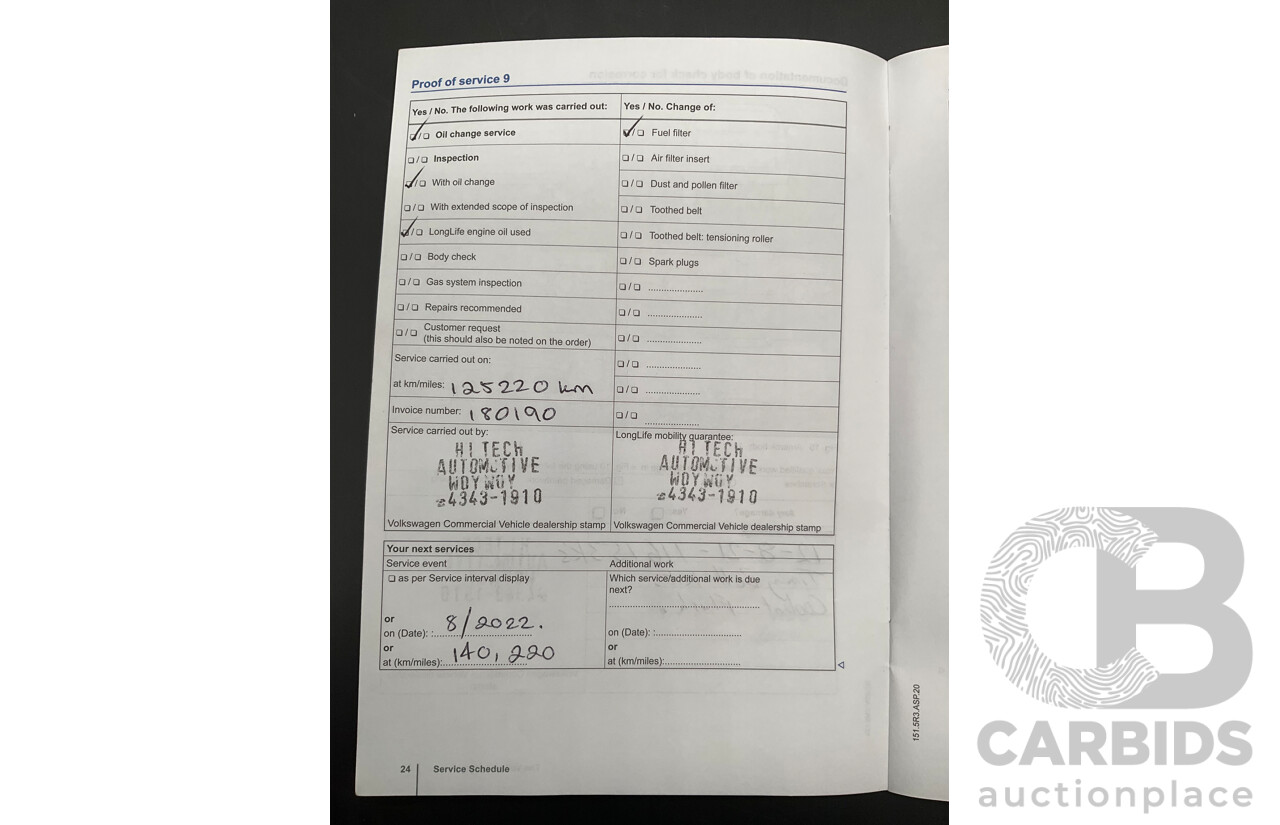 Proof of service 9
Yes / No. The following work was carried out:
Yes / No. Change of:
❏ / ❏ Oil change service
❏ / ❏ Fuel filter
❏ / ❏ Inspection
❏ / ❏ Air filter insert
❏ / ❏ With oil change
❏ / ❏ Dust and pollen filter
❏ / ❏ With extended scope of inspection
❏ / ❏ Toothed belt
❏ / ❏ LongLife engine oil used
❏ / ❏ Toothed belt: tensioning roller
❏ / ❏ Body check
❏ / ❏ Spark plugs
❏ / ❏ Gas system inspection
❏ / ❏ ......................
❏ / ❏ Repairs recommended
❏ / ❏ ......................
❏ / ❏ Customer request
(this should also be noted on the order)
❏ / ❏ ......................
Service carried out on:
❏ / ❏ ......................
at km/miles: 125220 km
❏ / ❏ ......................
Invoice number: 180190
❏ / ❏ ......................
Service carried out by:
HI TECH
AUTOMOTIVE
WOY WOY
☎4343-1910
Volkswagen Commercial Vehicle dealership stamp
LongLife mobility guarantee:
HI TECH
AUTOMOTIVE
WOY WOY
☎4343-1910
Volkswagen Commercial Vehicle dealership stamp
Your next services
Service event
Additional work
❏ as per Service interval display
Which service/additional work is due
next?
or
on (Date): : 8/2022.
or
at (km/miles): 140,220
on (Date): :
or
at (km/miles):
24
Service Schedule
151.5R3.ASP.20
CB
CARBIDS
auctionplace